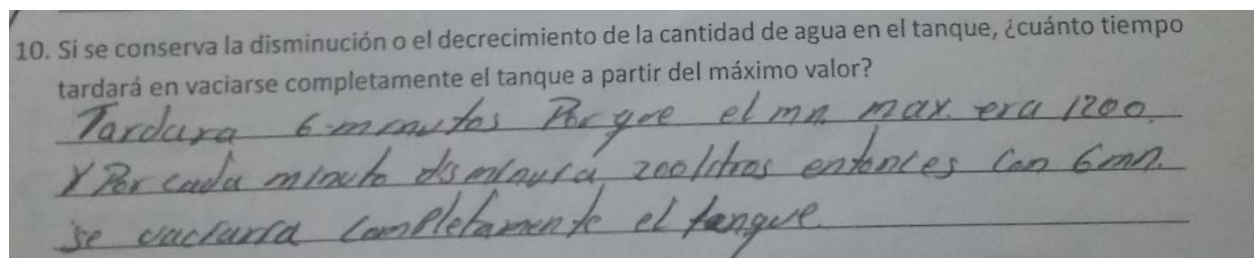 10. Si se conserva la disminución o el decrecimiento de la cantidad de agua en el tanque, ¿cuánto tiempo
tardará en vaciarse completamente el tanque a partir del máximo valor?
Tardara 6 minutos Por que el mn. max. era 1200.
Y Por cada minuto disminuya 200 litros entonces con 6 mn.
se vaciaria completamente el tanque.